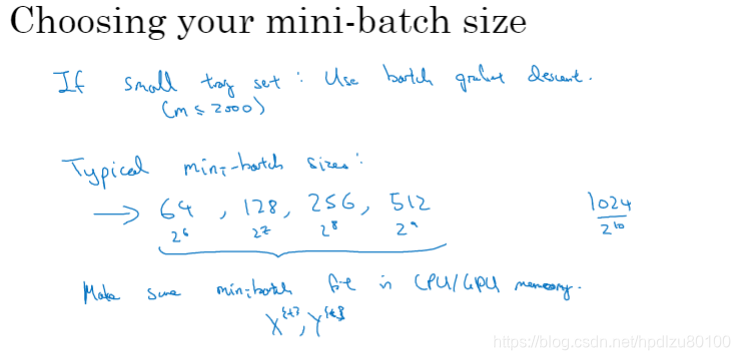 Choosing your mini-batch size
If small tray set : Use batch gradient descent.
(m ≤ 2000)
Typical mini-batch sizes:
→ 64 , 128, 256, 512
1024
2⁶ 2⁷ 2⁸ 2⁹
2¹⁰
Make sure mini-batch fit in CPU/GPU memory.
X^{t}, Y^{t}
https://blog.csdn.net/hpdlzu80100